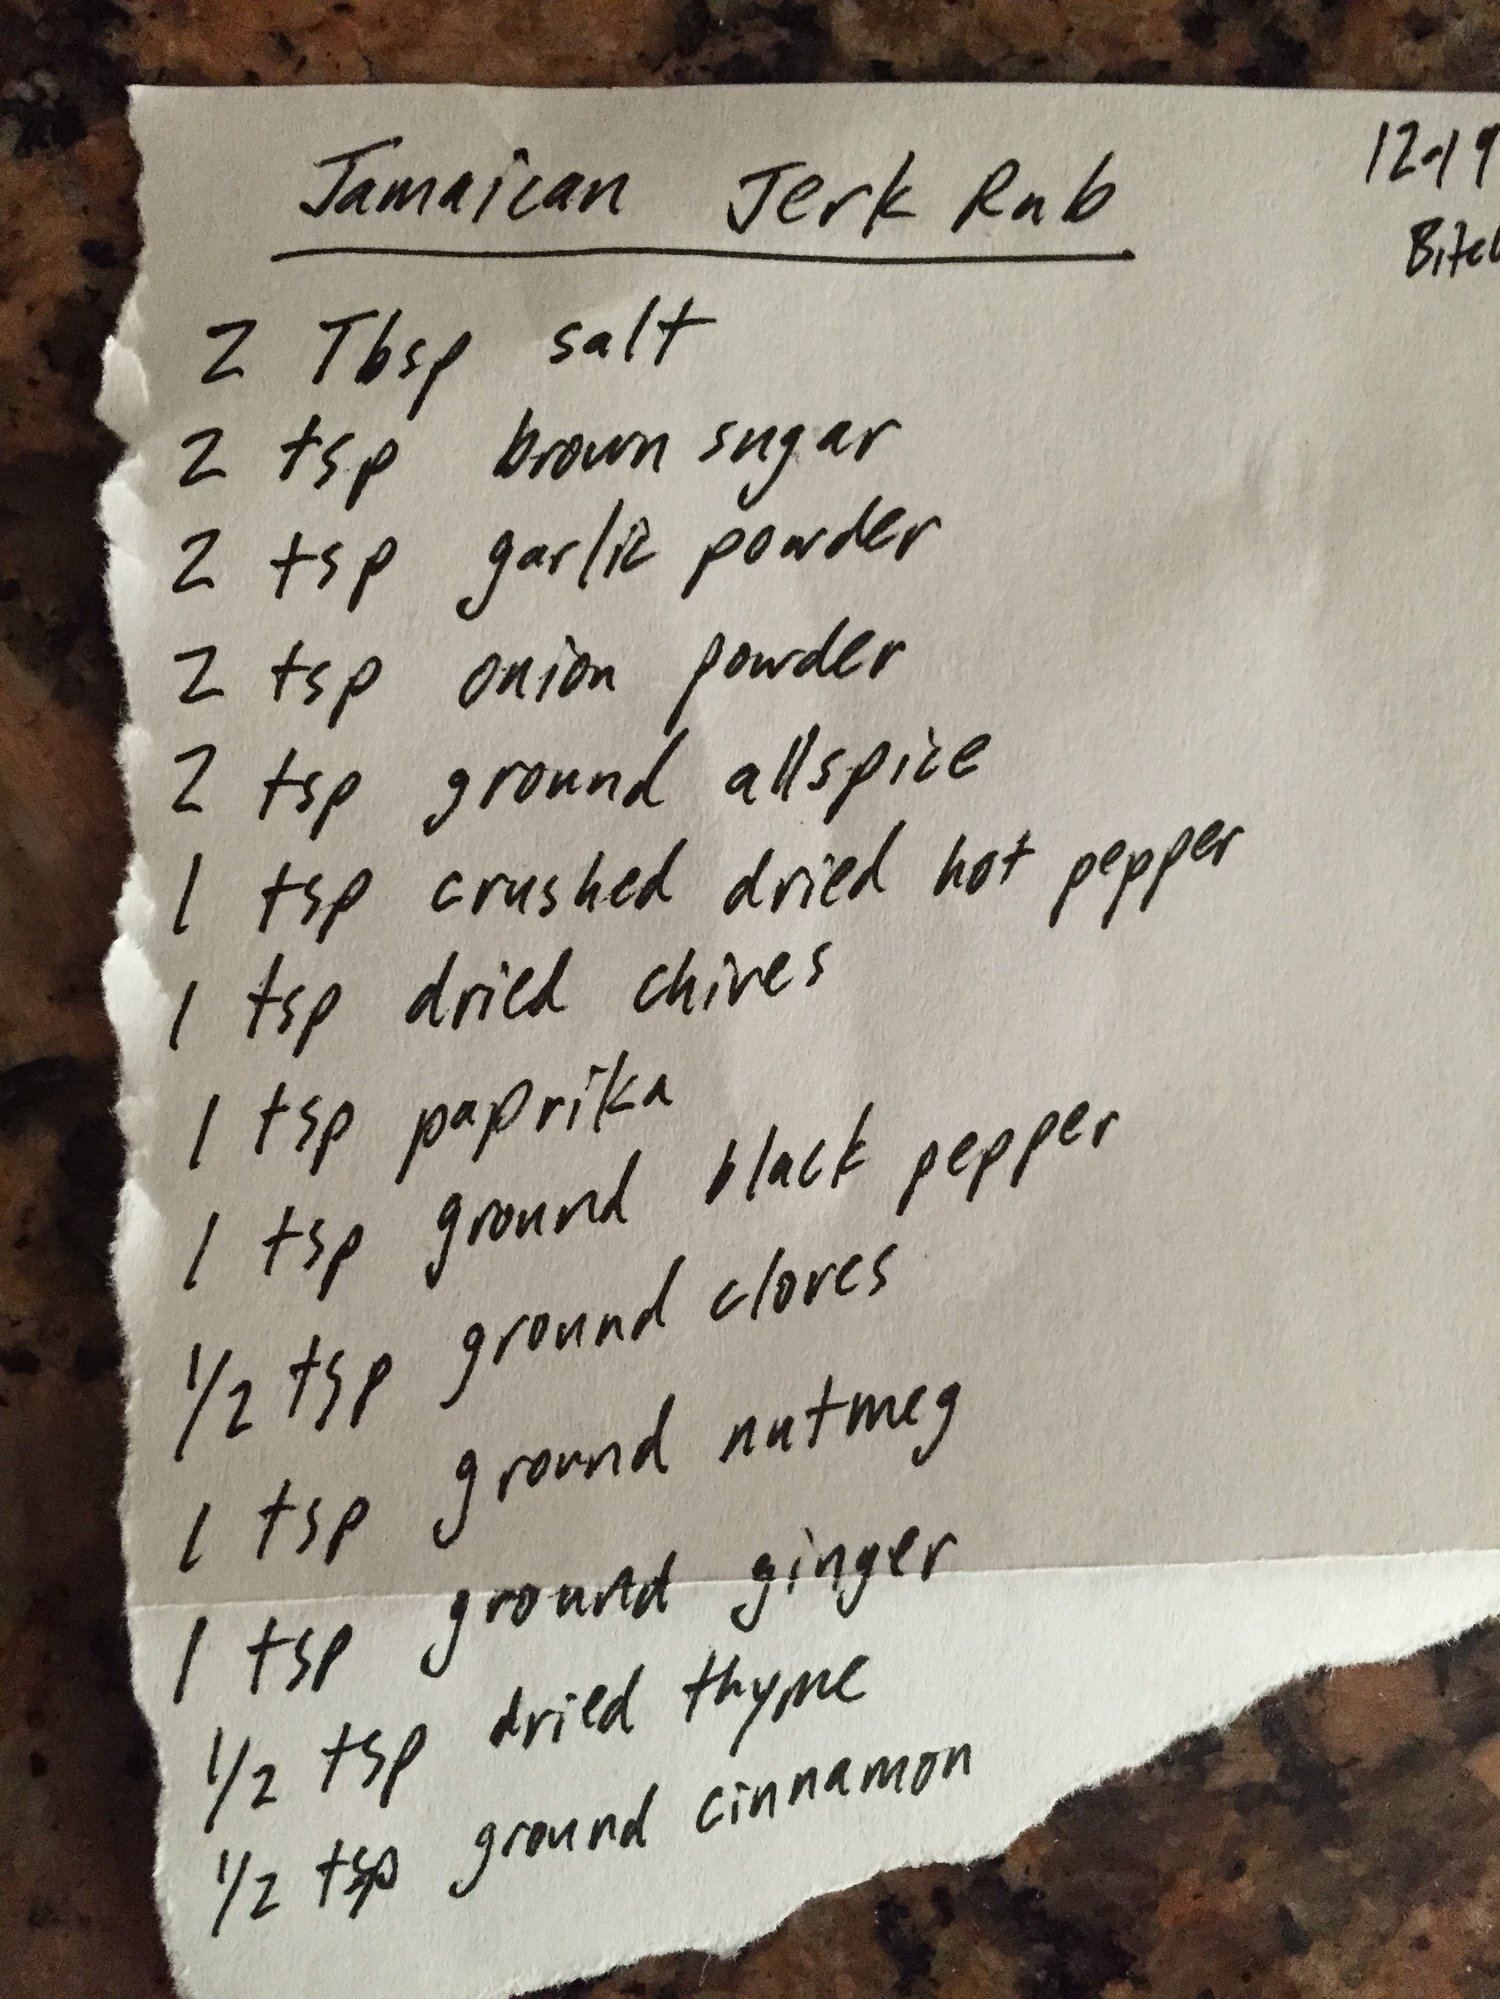 Jamaican Jerk Rub
2 Tbsp salt
2 tsp brown sugar
2 tsp garlic powder
2 tsp onion powder
2 tsp ground allspice
1 tsp crushed dried hot pepper
1 tsp dried chives
1 tsp paprika
1 tsp ground black pepper
1/2 tsp ground cloves
1 tsp ground nutmeg
1 tsp ground ginger
1/2 tsp dried thyme
1/2 tsp ground cinnamon
12-19